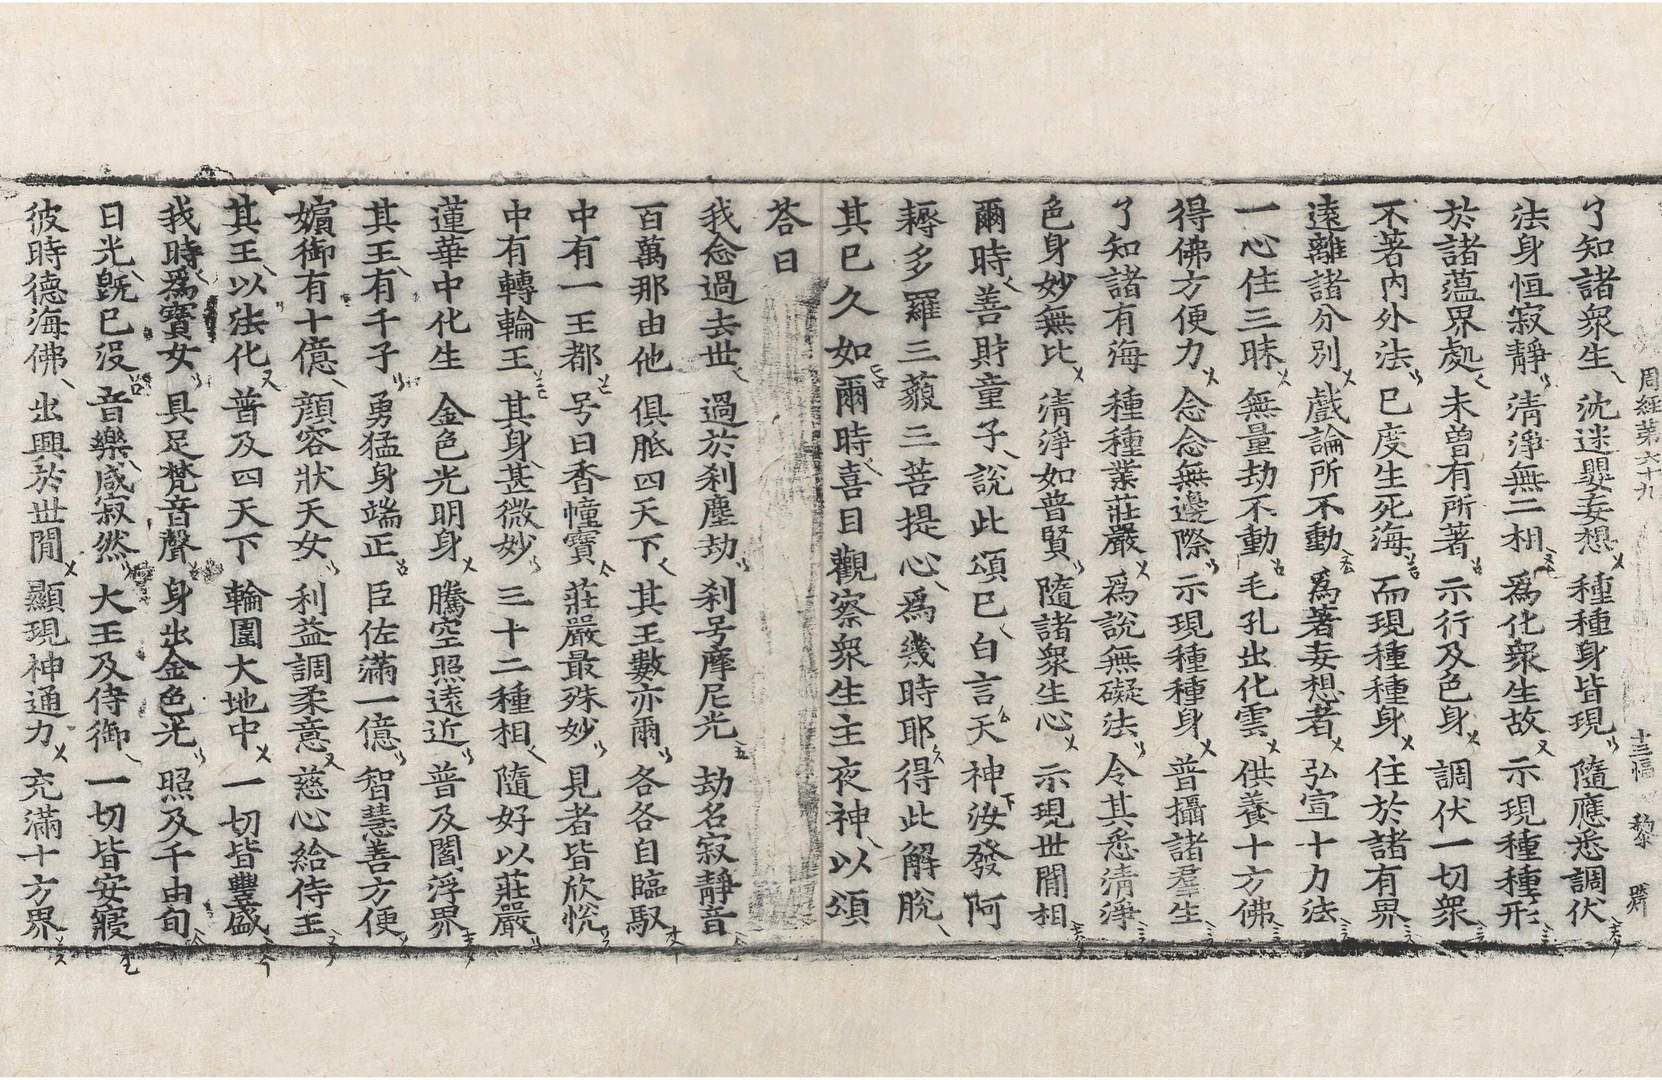 周經第六十九　十三幅　黎
了知諸衆生　沈迷嬰妄想　種種身皆現　隨應悉調伏
法身恒寂靜　清淨無二相　爲化衆生故　示現種種形
於諸蘊界處　未曾有所著　示行及色身　調伏一切衆
不著內外法　已度生死海　而現種種身　住於諸有界
遠離諸分別　戲論所不動　爲著妄想者　弘宣十力法
一心住三昧　無量劫不動　毛孔出化雲　供養十方佛
得佛方便力　念念無邊際　示現種種身　普攝諸羣生
了知諸有海　種種業莊嚴　爲說無礙法　令其悉清淨
色身妙無比　清淨如普賢　隨諸衆生心　示現世間相
爾時善財童子說此頌已白言天神汝發阿
耨多羅三藐三菩提心爲幾時耶得此解脫
其已久如爾時喜目觀察衆生主夜神以頌
荅曰
我念過去世　過於刹塵劫　刹号摩尼光　劫名寂靜音
百萬那由他　俱胝四天下　其王數亦爾　各各自臨馭
中有一王都　号曰香幢寶　莊嚴最殊妙　見者皆欣悅
中有轉輪王　其身甚微妙　三十二種相　隨好以莊嚴
蓮華中化生　金色光明身　騰空照遠近　普及閻浮界
其王有千子　勇猛身端正　臣佐滿一億　智慧善方便
嬪御有十億　顏容狀天女　利益調柔意　慈心給侍王
其王以法化　普及四天下　輪圍大地中　一切皆豐盛
我時爲寶女　具足梵音聲　身出金色光　照及千由旬
日光旣已沒　音樂咸寂然　大王及侍御　一切皆安寢
彼時德海佛　出興於世間　顯現神通力　充滿十方界